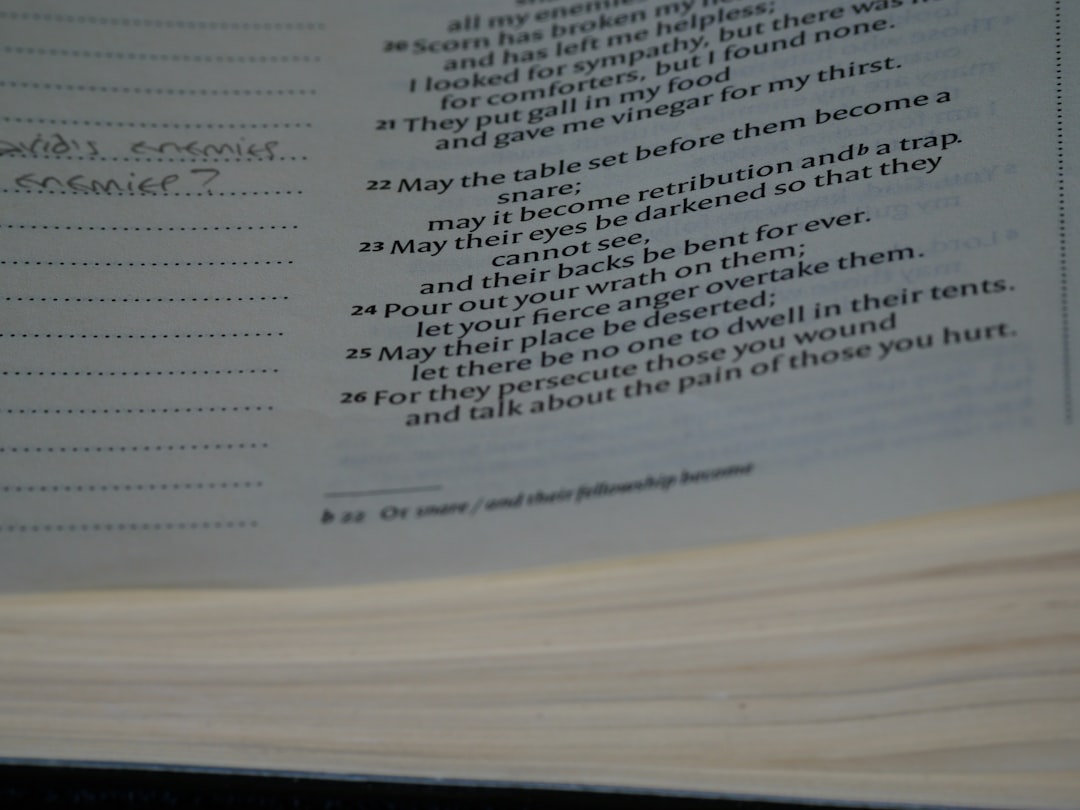 all my enemies
20 Scorn has broken my
and has left me helpless;
I looked for sympathy, but there was
for comforters, but I found none.
21 They put gall in my food
and gave me vinegar for my thirst.
22 May the table set before them become a
snare;
may it become retribution and b a trap.
23 May their eyes be darkened so that they
cannot see,
and their backs be bent for ever.
24 Pour out your wrath on them;
let your fierce anger overtake them.
25 May their place be deserted;
let there be no one to dwell in their tents.
26 For they persecute those you wound
and talk about the pain of those you hurt.
b 22 Or snare / and their fellowship become
avid's enemies
enemies?